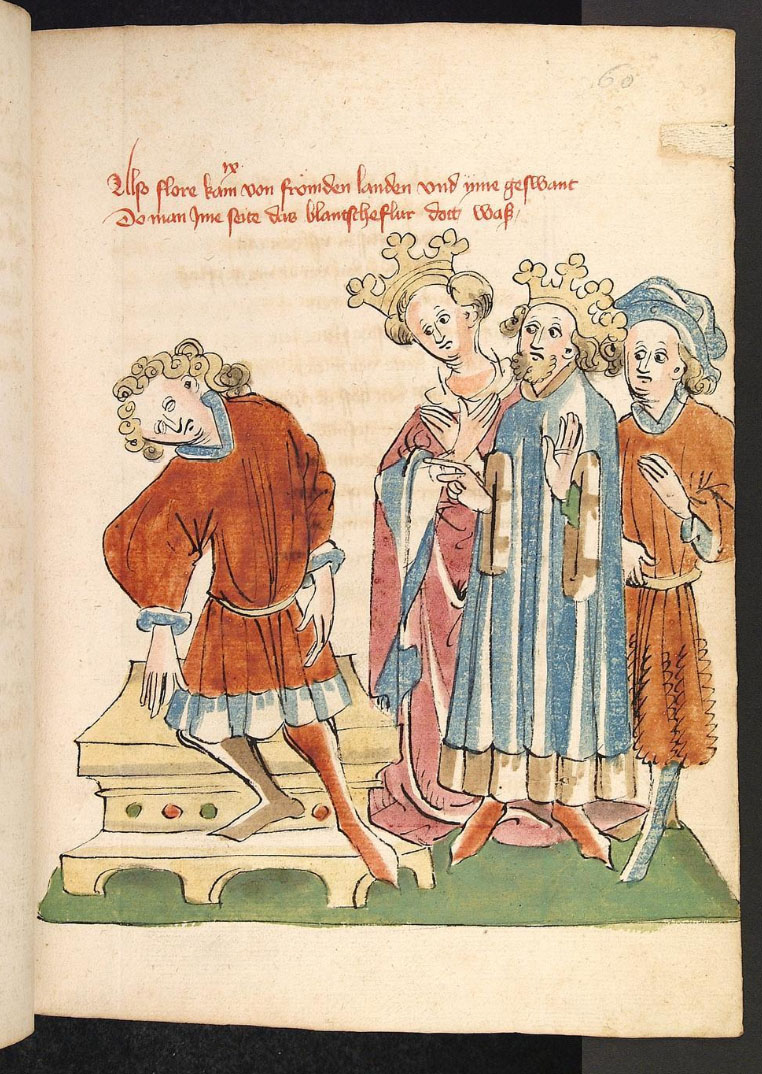 60
ix
Also flore kam von frömden landen vnd ÿme geswant
Do man Jme seite das blantscheflur dott waß /